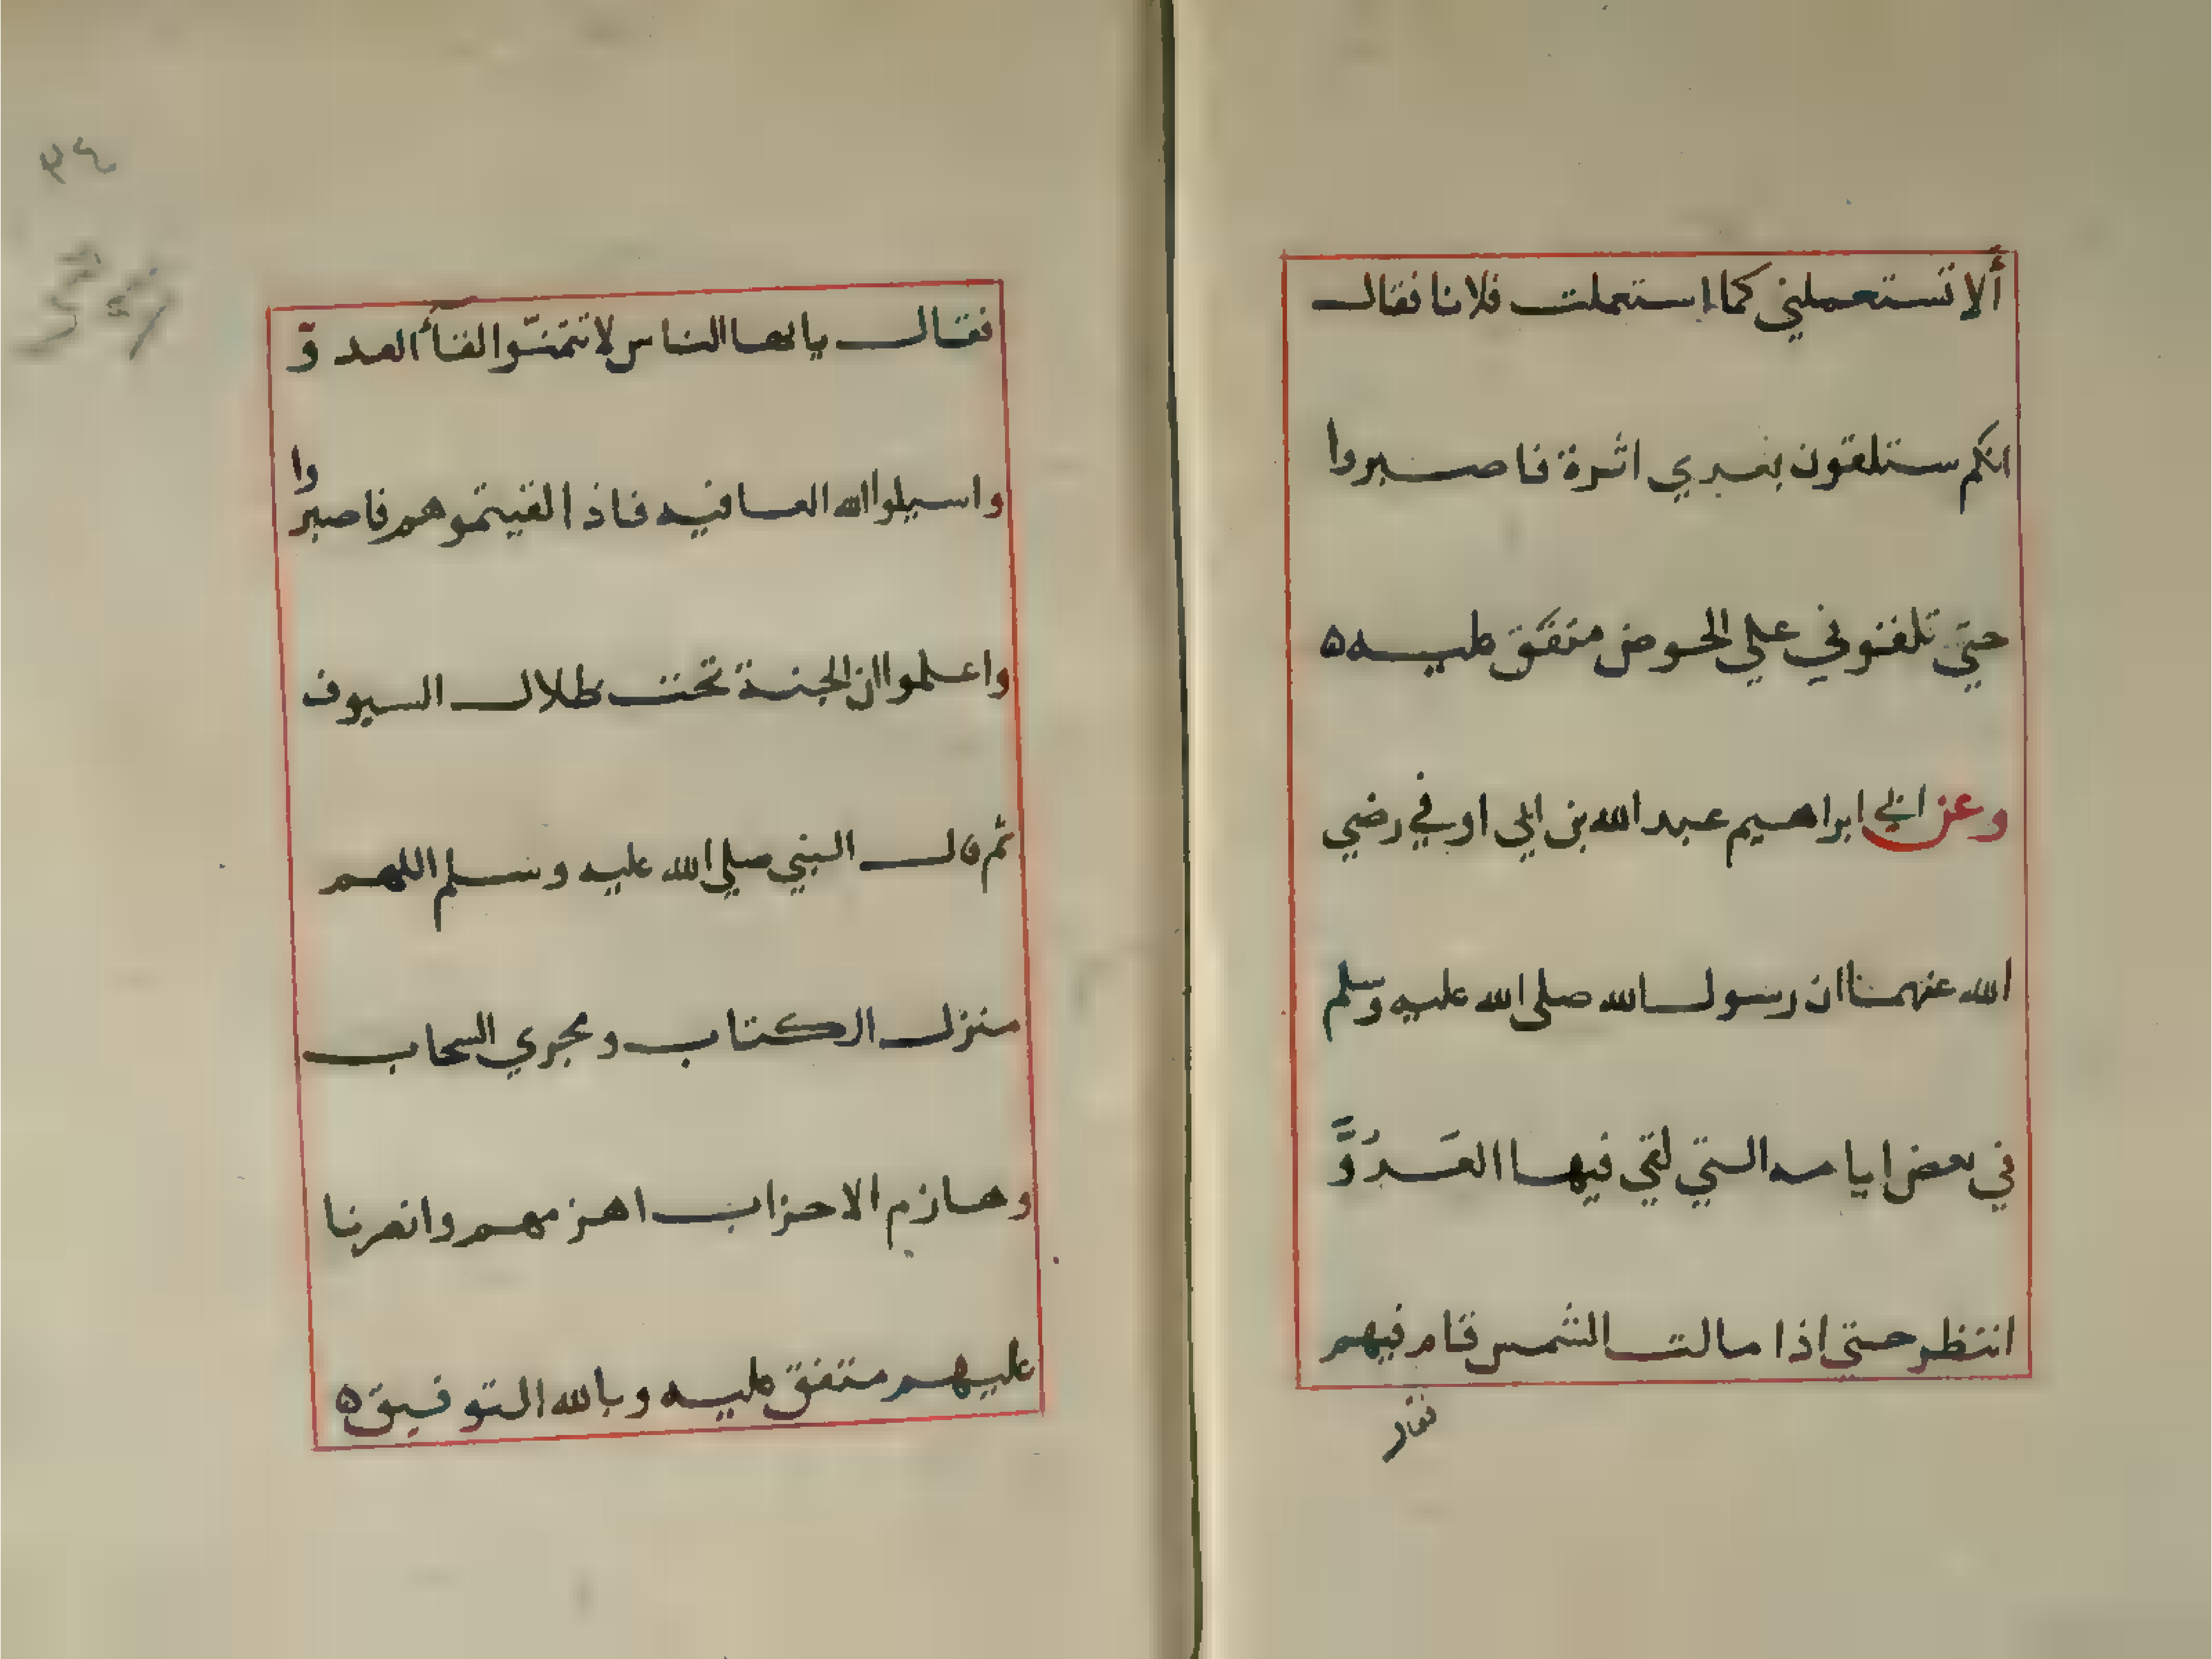 ألا تستعملني كما إستعملت فلانا فقال
انكم ستلقون بعدي اثرة فاصبروا
حتي تلقوني علي الحوض متفق عليه ه
وعن ابي ابراهيم عبد الله بن ابي اوفي رضي
الله عنهما ان رسول الله صلي الله عليه وسلم
في بعض ايامه التي لقي فيها العَدُوَّ
انتظر حتي اذا مالت الشمس قام فيهم
فقال
فقال يايها الناس لا تتمنّوا لقاأ العدوّ
واسيلوا الله العافيه فاذا لقيتموهم فاصبروا
واعلموا ان الجنة تحت ظلال السيوف
ثم قال النبي صلي الله عليه وسلم اللهم
منزل الكتاب ومجري السحاب
وهازم الاحزاب اهزمهم وانصرنا
عليهم متفق عليه وبالله التوفيق ه